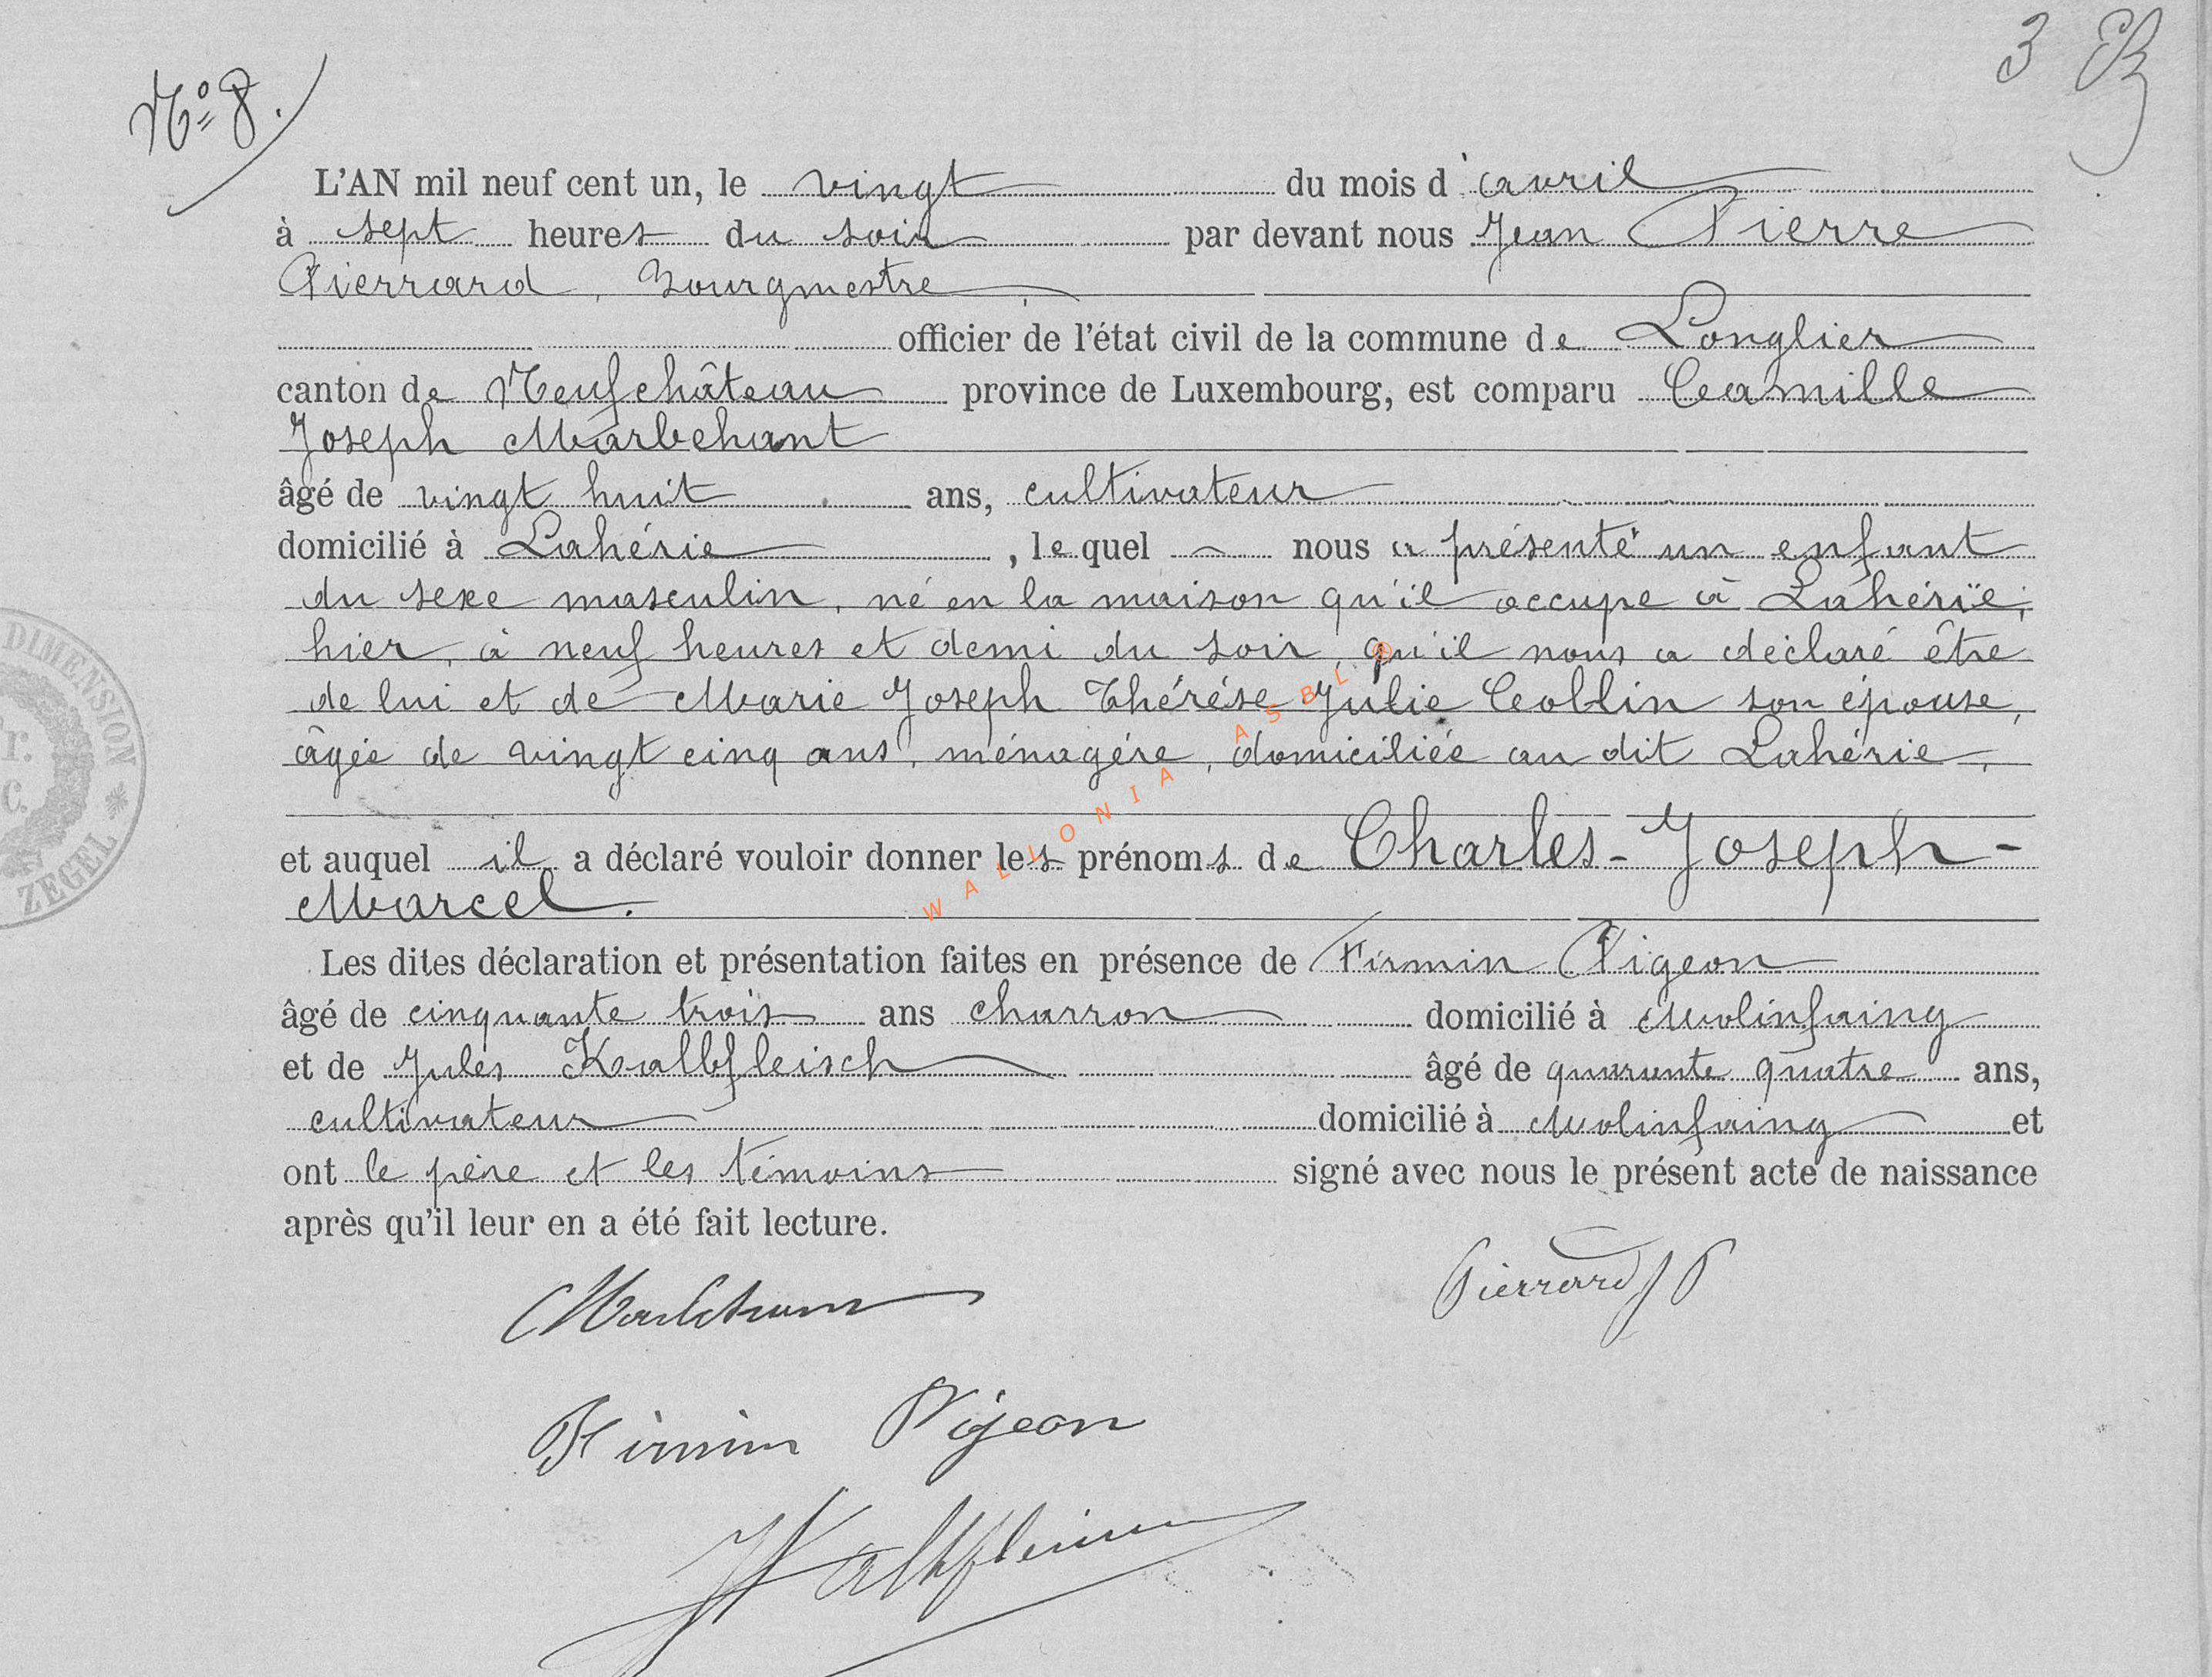 3
Nº 8.
L'AN mil neuf cent un, le vingt du mois d'avril
à sept heures du soir par devant nous Jean Pierre
Pierrard, Bourgmestre
officier de l'état civil de la commune de Longlier
canton de Neufchâteau province de Luxembourg, est comparu Camille
Joseph Marbehant
âgé de vingt huit ans, cultivateur
domicilié à Lahérie, lequel nous a présenté un enfant
du sexe masculin, né en la maison qu'il occupe à Lahérie,
hier, à neuf heures et demi du soir, qu'il nous a déclaré être
de lui et de Marie Joseph Thérése Julie Collin son épouse,
âgée de vingt cinq ans, ménagére, domiciliée au dit Lahérie,
et auquel il a déclaré vouloir donner les prénoms de Charles-Joseph-
Marcel.
Les dites déclaration et présentation faites en présence de Firmin Pigeon
âgé de cinquante trois ans charron domicilié à Molinfaing
et de Jules Kalbfleisch âgé de quarante quatre ans,
cultivateur domicilié à Molinfaing et
ont le père et les témoins signé avec nous le présent acte de naissance
après qu'il leur en a été fait lecture.
Pierrard JP
Firmin Pigeon
DIMENSION
ZEGEL
WALLONIA ASBL ®